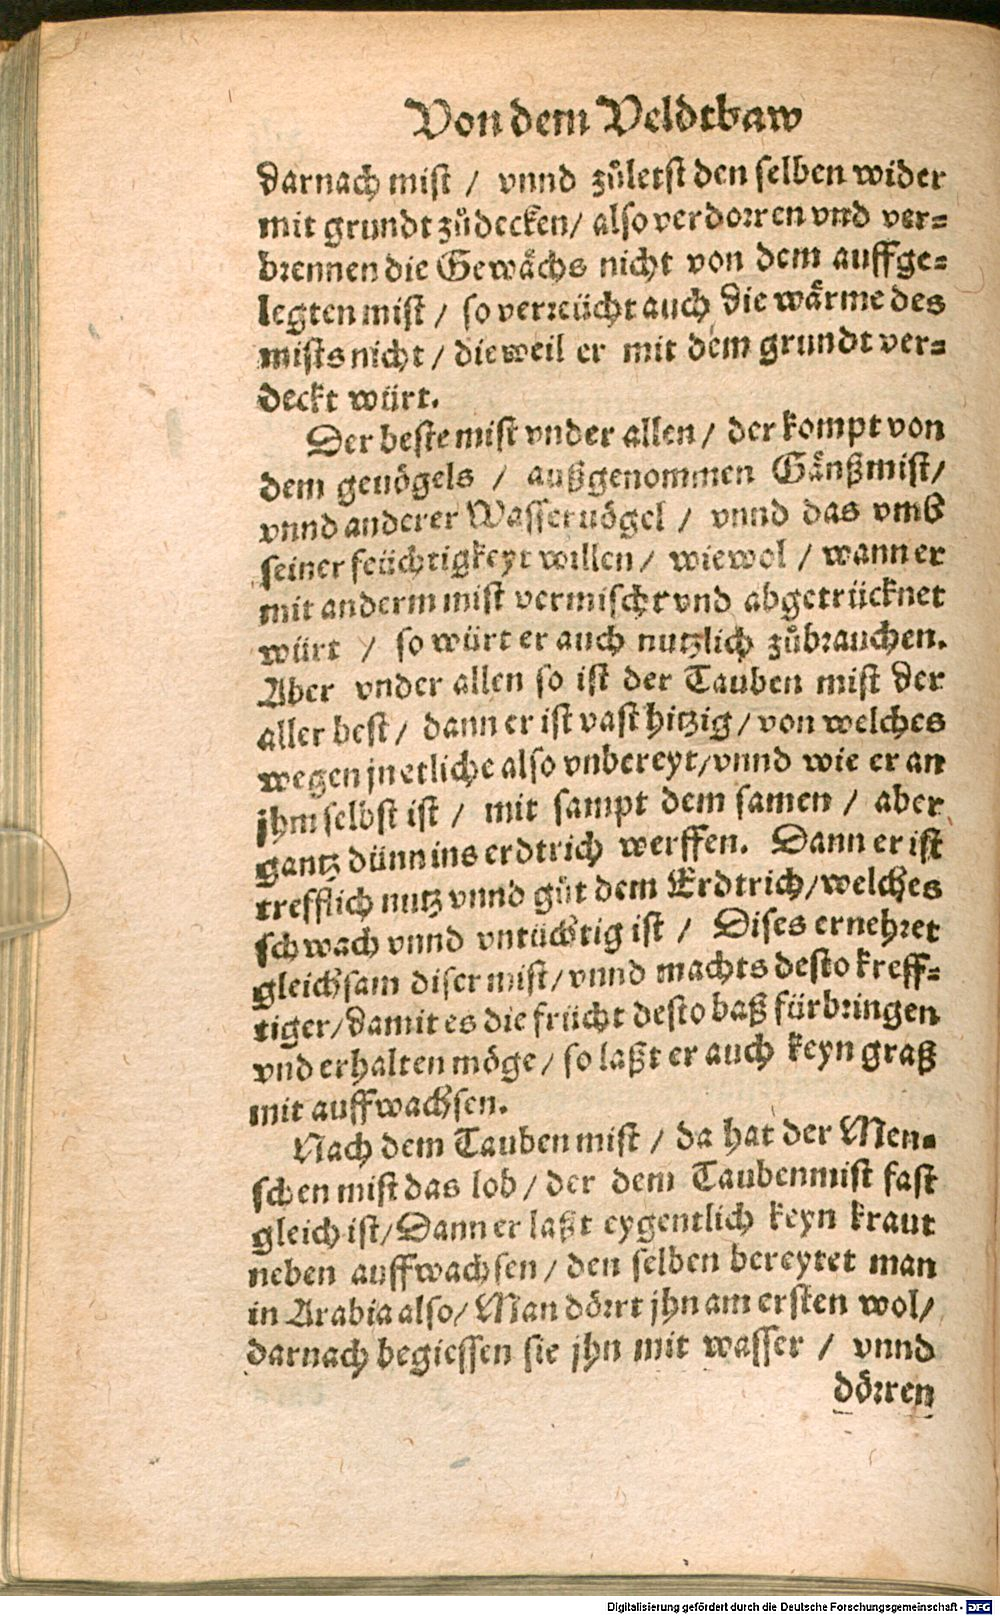 Von dem Veldtbaw
darnach mist / vnnd zůletst den selben wider
mit grundt zůdecken/ also verdorren vnd ver-
brennen die Gewächs nicht von dem auffge-
legten mist / so verreücht auch die wärme des
mists nicht / dieweil er mit dem grundt ver-
deckt würt.
Der beste mist vnder allen / der kompt von
dem geuögels / außgenommen Gänßmist/
vnnd anderer Wasseruögel / vnnd das vmb
seiner feüchtigkeyt willen / wiewol / wann er
mit anderm mist vermischt vnd abgetrücknet
würt / so würt er auch nutzlich zůbrauchen.
Aber vnder allen so ist der Tauben mist der
aller best / dann er ist vast hitzig / von welches
wegen jn etliche also vnbereyt/vnnd wie er an
jhm selbst ist / mit sampt dem samen / aber
gantz dünn ins erdtrich werffen. Dann er ist
trefflich nutz vnnd gůt dem Erdtrich/welches
schwach vnnd vntüchtig ist / Dises ernehret
gleichsam diser mist/vnnd machts desto kreff-
tiger/damit es die frücht desto baß fürbringen
vnd erhalten möge / so laßt er auch keyn graß
mit auffwachsen.
Nach dem Tauben mist / da hat der Men-
schen mist das lob / der dem Taubenmist fast
gleich ist/Dann er laßt eygentlich keyn kraut
neben auffwachsen / den selben bereytet man
in Arabia also/ Man dörrt jhn am ersten wol/
darnach begiessen sie jhn mit wasser / vnnd
dörren
Digitalisierung gefördert durch die Deutsche Forschungsgemeinschaft - DFG